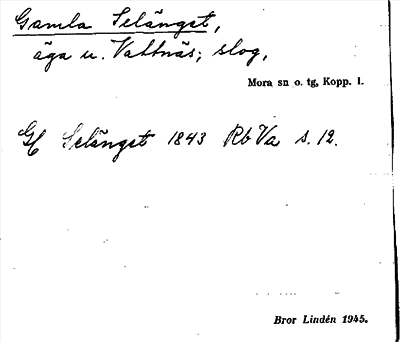 Gamla Selängst,
äga u. Vattnäs; slog,
Mora sn o. tg, Kopp. l.
Gl Selängst 1843 Rb Va s. 12.
Bror Lindén 1945.